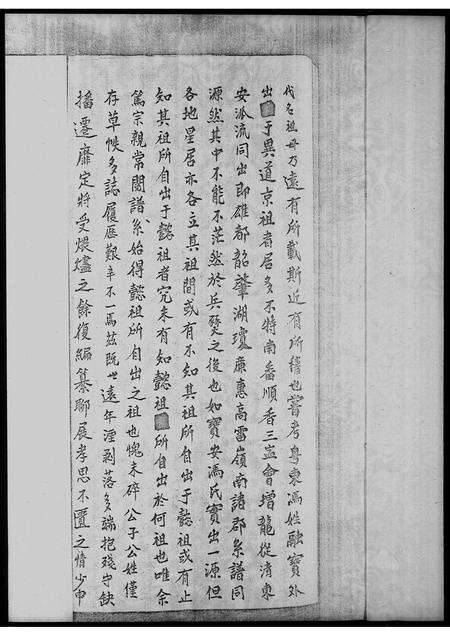 代名祖毋乃遠有所載斯近有所稽也嘗考粤東馮姓融寶外
出于異道京祖者居多不特南番順香三𠀋會增龍從清東
安派流同出即雄都韶肇湖瓊廉惠高雷嶺南諸郡系譜同
源然其中不能不茫然於兵燹之後也如寶安馮氏實出一源但
各地星居亦各立其祖間或有不知其祖所自出于懿祖或有止
知其祖所自出于懿祖者究未有知懿祖所自出於何祖也唯余
篤宗親常閱譜系始得懿祖所自出之祖也愧未碎公子公姓僅
存草帙多誌履歷艱辛不一焉茲既世遠年湮剥落多端抱殘守缺
播遷靡定將受煨燼之餘復編纂聊展孝思不匱之情少申